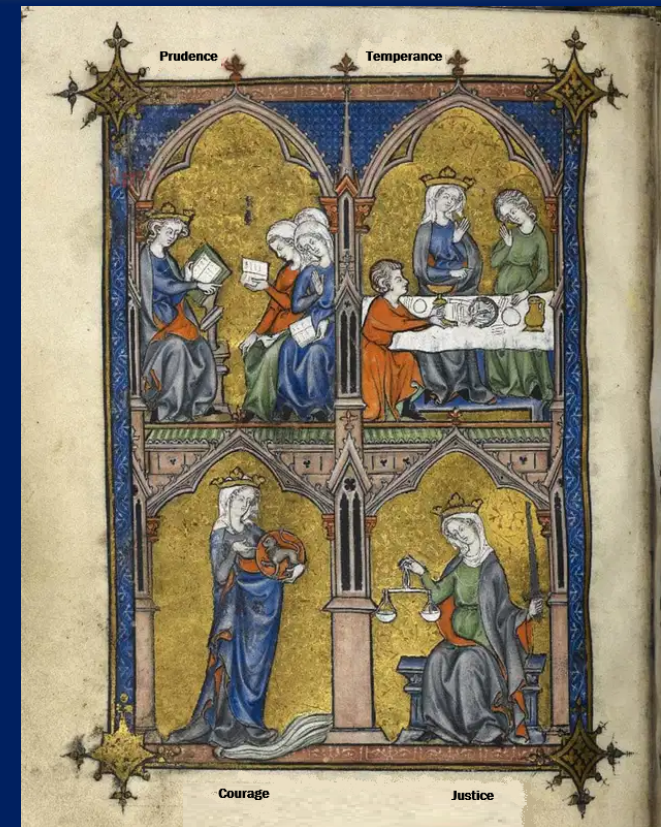 Prudence
Temperance
Courage
Justice